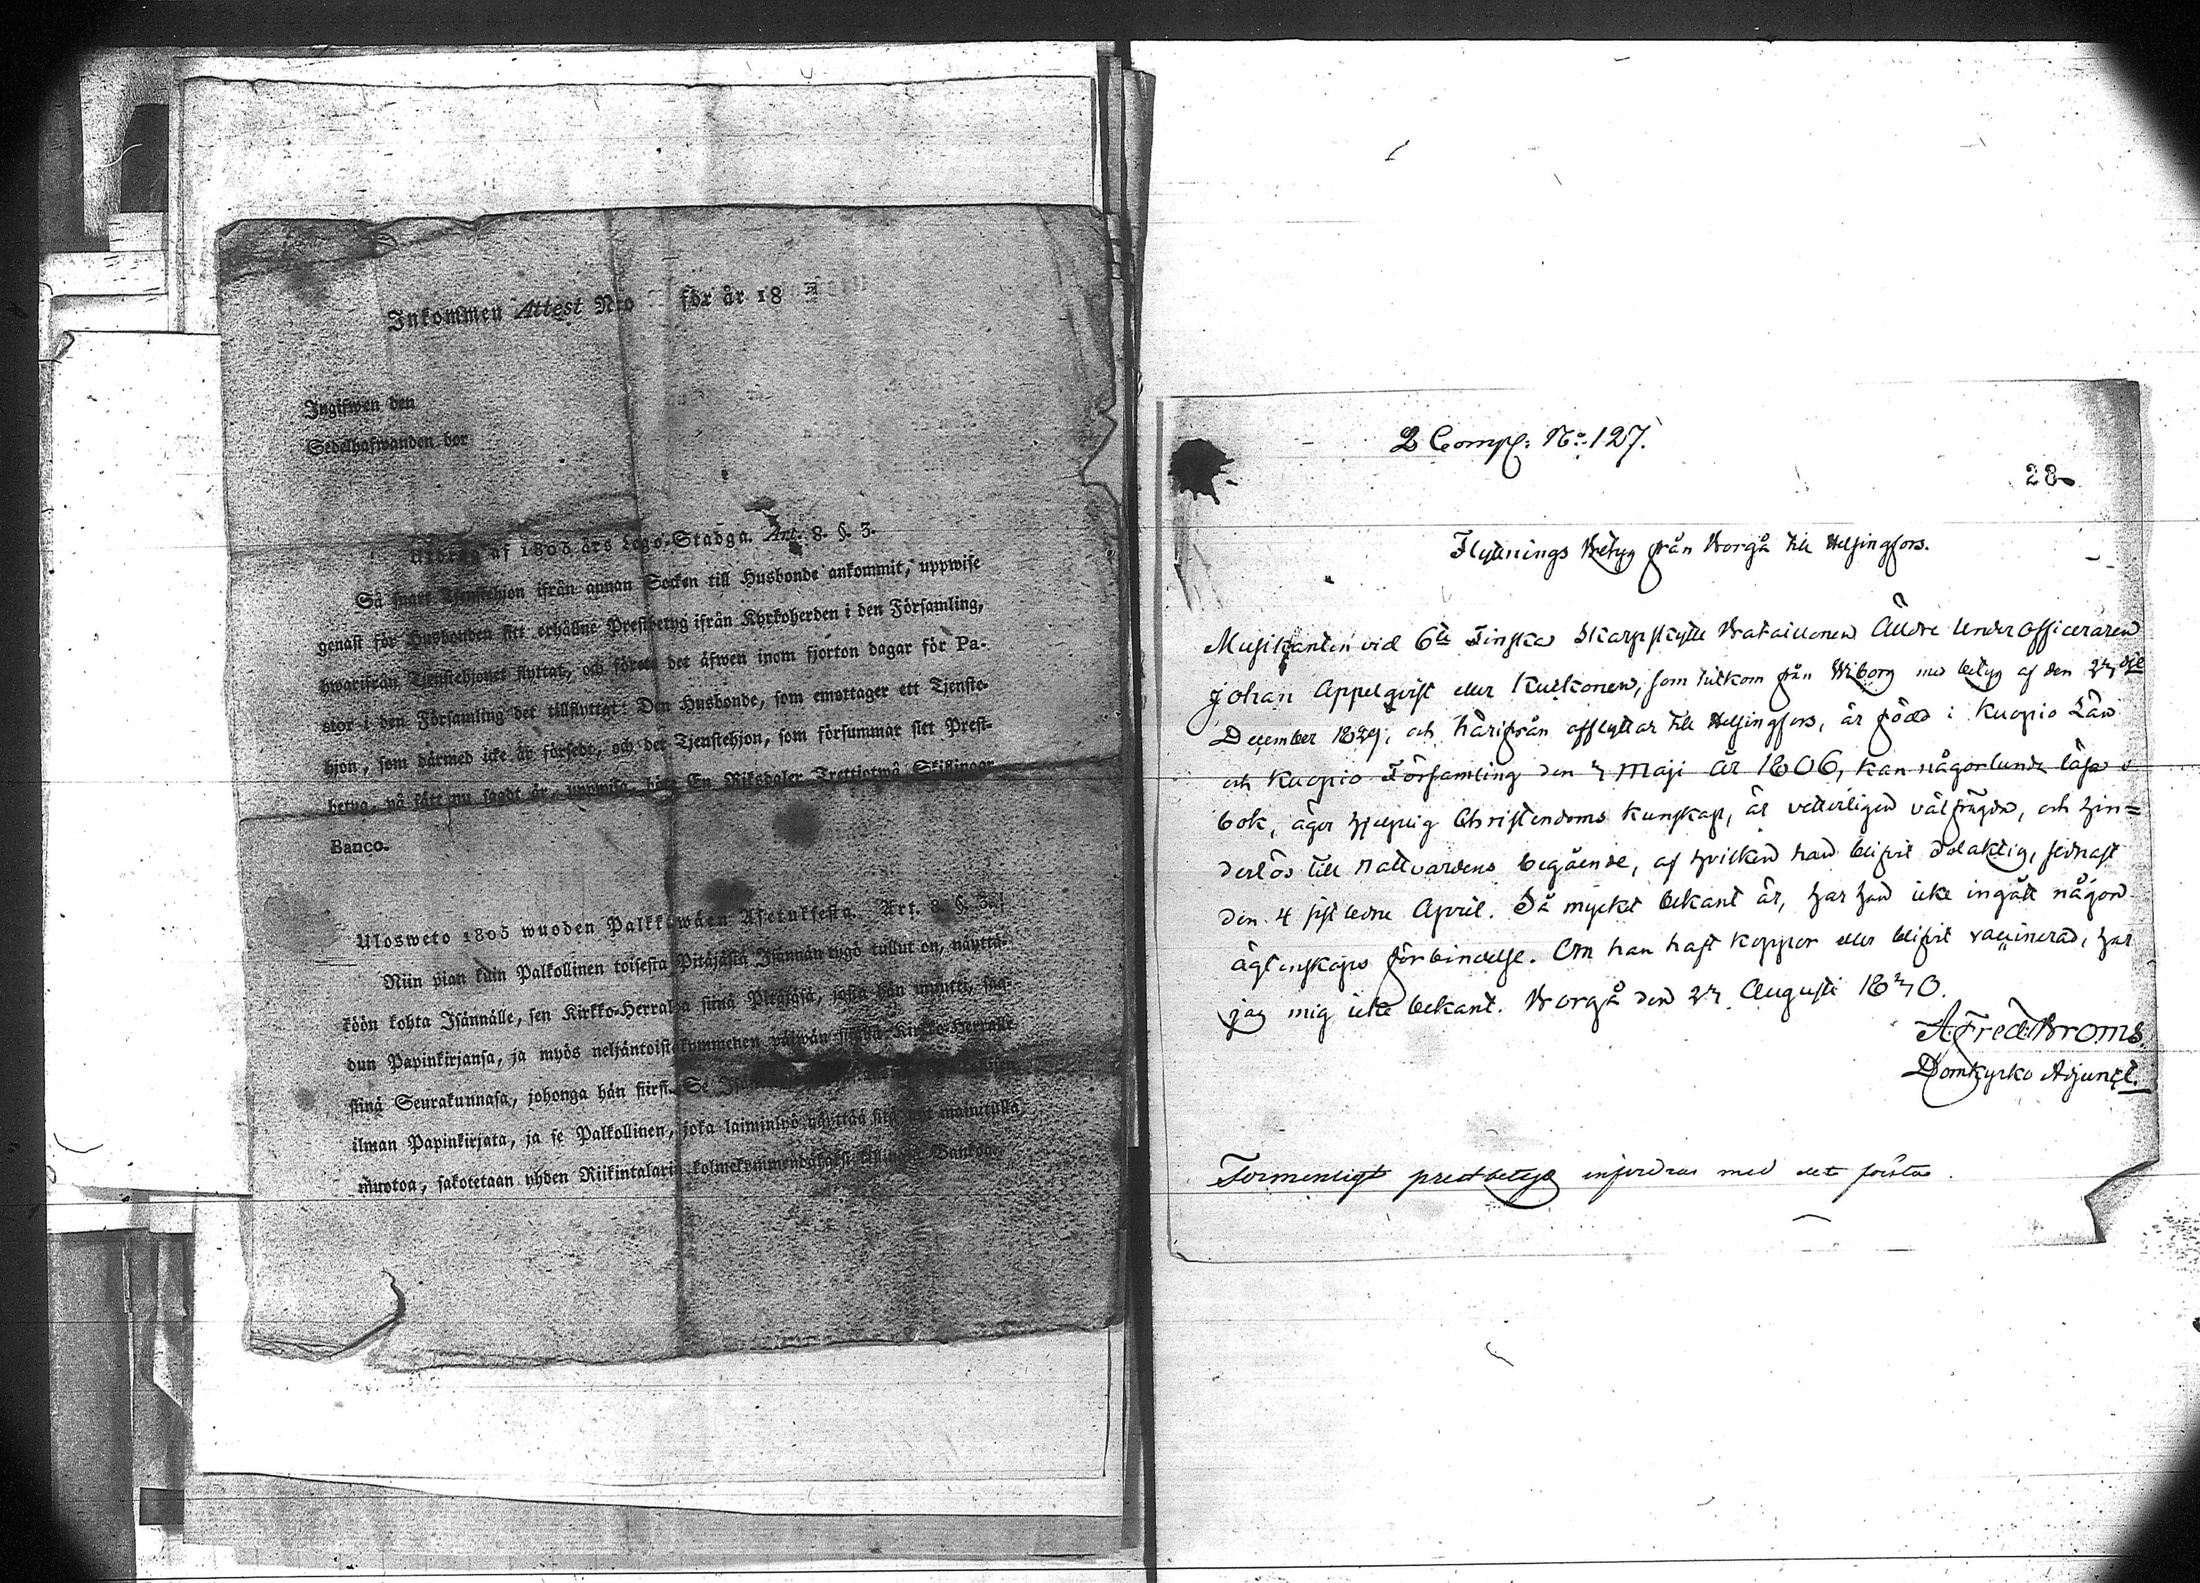 Inkommen Attest N:o för år 18
Ingifwen den
Sedelhafwanden bor
Utdrag af 1805 års Lego-Stadga. Art. 8. §. 3.
Så snart Tjenstehjon ifrån annan Socken till Husbonde ankommit, uppwise
genast för Husbonden sitt erhållne Prestbetyg ifrån Kyrkoherden i den Församling,
hwarifrån Tjenstehjonet flyttat, och förete det äfwen inom fjorton dagar för Pa-
stor i den Församling det tillflyttat: Den Husbonde, som emottager ett Tjenste-
hjon, som därmed icke är försedt, och det Tjenstehjon, som försummar sitt Prest-
betyg, på sätt nu sagdt är, uppwisa, böte En Riksdaler Trettiotwå Skillingar
Banco.
Ulosweto 1805 wuoden Palkkawäen Asetuksesta. Art. 8. §. 3.
Niin pian kuin Palkollinen toisesta Pitäjästä Isännän tygö tullut on, näyttä-
köön kohta Isännälle, sen Kirkko-Herralda siinä Pitäjäsä, josta hän muutti, saa-
dun Papinkirjansa, ja myös neljäntoistakymmenen päiwän sisällä Kirkko-Herralle
siinä Seurakunnasa, johonga hän siirsi. Se
ilman Papinkirjata, ja se Palkollinen, joka laiminlyö näyttää sitä mainitulla
muotoa, sakotetaan yhden Riikintalarin kolmekymmendäkaksi killingiä Bankoa.
2 Comp: No: 127.
28
Flyttnings Betyg från Borgå till Helsingfors.
Musikanten vid 6te Finska Skarpskytte Bataillonen Äldre Underofficeraren
Johan Appelqvist eller Kukkonen, som hitkom från Wiborg med betyg af den
December 1839, och härifrån afflyttar till Helsingfors, är född i Kuopio Län
och Kuopio Församling den Maji år 1806, kan någorlunda läsa i
bok, äger hjelplig Christendoms kunskap, är vetterligen välfrägdad, och hin=
derlös till Nattvardens begående, af hvilken han blifvit delaktig, sednast
den 4 sistledne April. Så mycket bekant är, har han icke ingått någon
ägtenskaps förbindelse. Om han haft koppor eller blifvit vaccinerad, har
jag mig icke bekant. Borgå den Augusti
A. Fred: Broms.
Domkyrko Adjunct.
Formenligt prestbetyg infordras med det första.